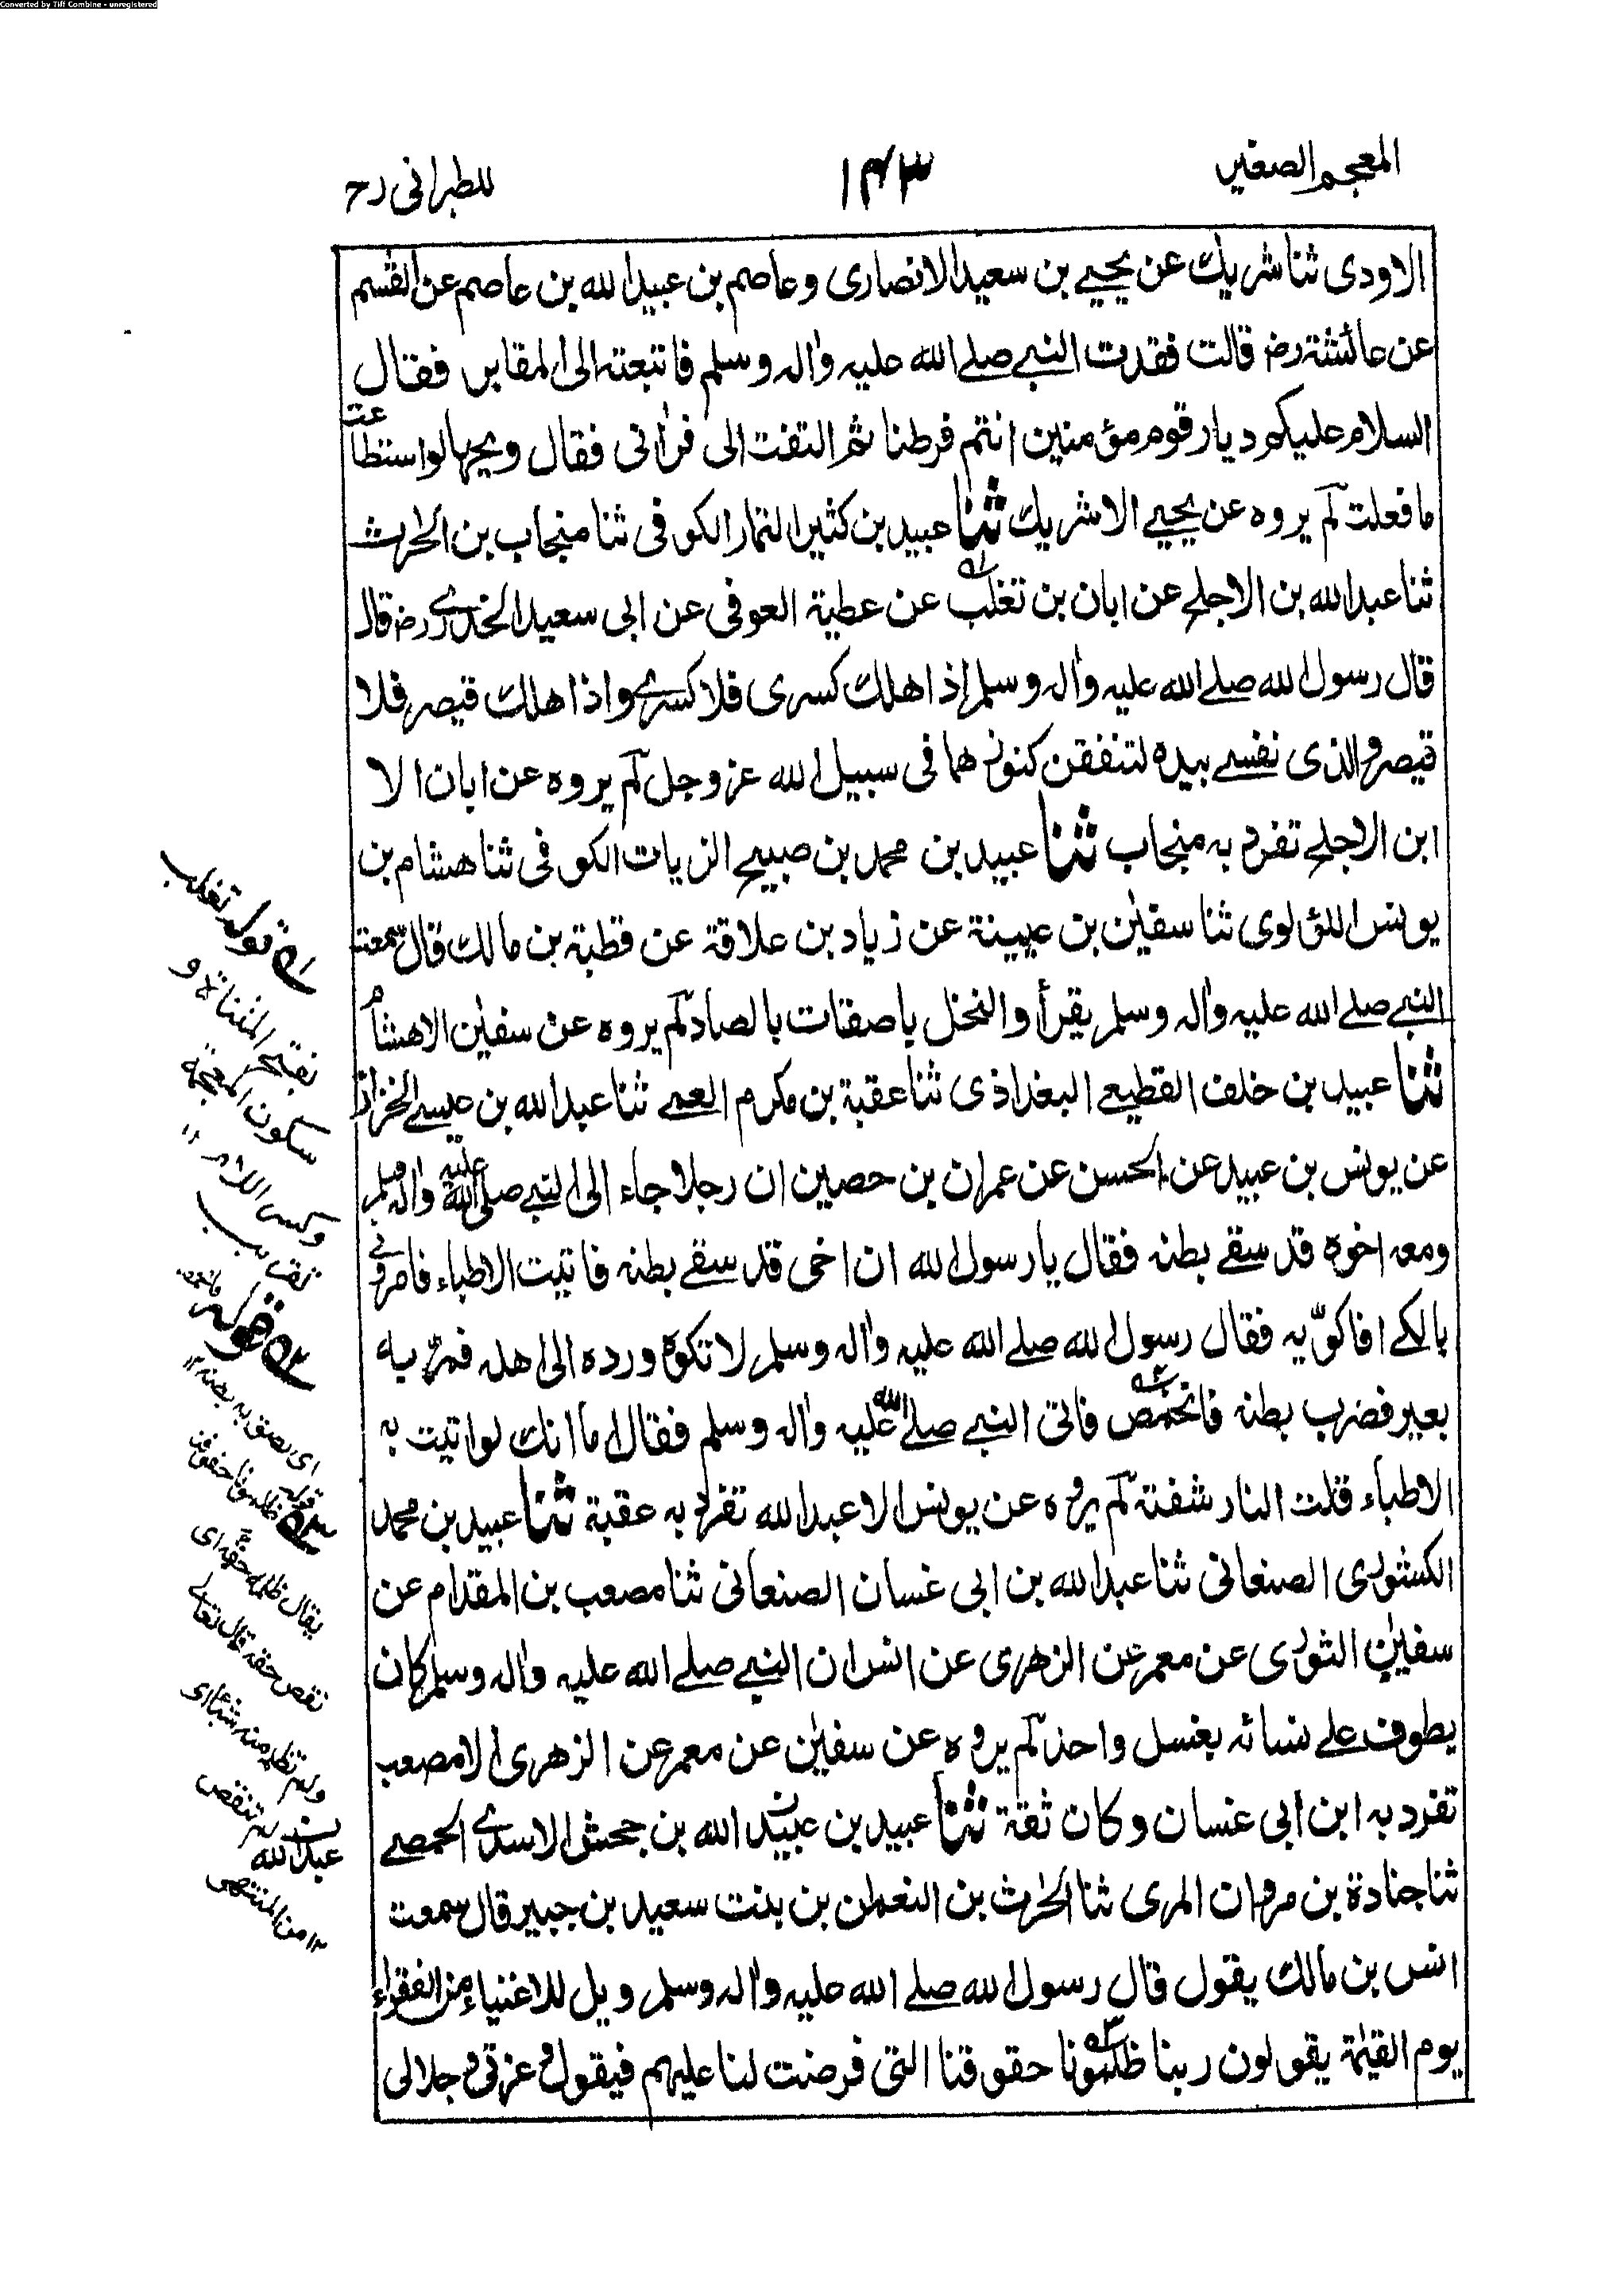 Converted by Tiff Combine - unregistered
المعجم الصغير
١٤٣
للطبرانی رح
الاودی ثنا شریك عن یحیے بن سعید الانصاری وعاصم بن عبید الله بن عاصم عن القٰسم
عن عائشة رضـ قالت فقدت النبے صلے الله علیه واٰله وسلم فاتبعته الی المقابر فقال
السلام علیکم دیار قوم مؤمنین انتم فرطنا ثم التفت الی فراٰنی فقال ویحها لو استطاعت
ما فعلت لم یروه عن یحیے الا شریك ثنا عبید بن کثیر التمار الکوفی ثنا منجاب بن الحٰرث
ثنا عبد الله بن الاجلح عن ابان بن تغلب عن عطیة العوفی عن ابی سعید الخدرے رضـ قال
قال رسول الله صلے الله علیه واٰله وسلم اذا هلك کسری فلا کسرے واذا هلك قیصر فلا
قیصر والذی نفسے بیده لتنفقن کنوزهما فی سبیل الله عز وجل لم یروه عن ابان الا
ابن الاجلح تفرد به منجاب ثنا عبید بن محمد بن صبیح الزیات الکوفی ثنا هشام بن
یونس اللؤلوی ثنا سفیٰن بن عیینة عن زیاد بن علاقة عن قطبة بن مالك قال سمعت
النبے صلے الله علیه واٰله وسلم یقرأ والنخل باصقات بالصاد لم یروه عن سفیٰن الا هشام
ثنا عبید بن خلف القطیعے البغداذی ثنا عقبة بن مکرم العمے ثنا عبد الله بن عیسے الخزاز
عن یونس بن عبید عن الحسن عن عمران بن حصین ان رجلا جاء الی النبے صلی الله علیه واٰله وسلم
ومعه اخوه قد سقے بطنه فقال یا رسول الله ان اخی قد سقے بطنه فاتیت الاطباء فامرونے
بالکے افاکوّیه فقال رسول الله صلے الله علیه واٰله وسلم لا تکوه ورده الی اهله فمرّ به
بعیر فضرب بطنه فانخمص فاتی النبے صلے الله علیه واٰله وسلم فقال اما انك لو اتیت به
الاطباء قلت النار شفته لم یروه عن یونس الا عبد الله تفرد به عقبة ثنا عبید بن محمد
الکشوری الصنعانی ثنا عبد الله بن ابی غسان الصنعانی ثنا مصعب بن المقدام عن
سفیٰن الثوری عن معمر عن الزهری عن انس ان النبے صلے الله علیه واٰله وسلم کان
یطوف علے نسائه بغسل واحد لم یروه عن سفیٰن عن معمر عن الزهری الا مصعب
تفرد به ابن ابی غسان وکان ثقة ثنا عبید بن عبد الله بن جحش الاسدے الحمصے
ثنا جنادة بن مروان المری ثنا الحٰرث بن النعمان بن بنت سعید بن جبیر قال سمعت
انس بن مالك یقول قال رسول الله صلے الله علیه واٰله وسلم ویل للاغنیاء من الفقراء
یوم القیٰمة یقولون ربنا ظلمونا حقوقنا التی فرضت لنا علیهم فیقول وعزتی وجلالی
قوله تغلب
بفتح المثناة و
سکون المعجمة
وکسر اللام ۱۲
تقریب
قوله فانخمص
قوله ظلمونا حقوقنا
یقال ظلمه حقه ای
نقص حقه قال تعالے
ولم تظلم منه شیئا ای
لم تنقص
۱۲ من المنتهی